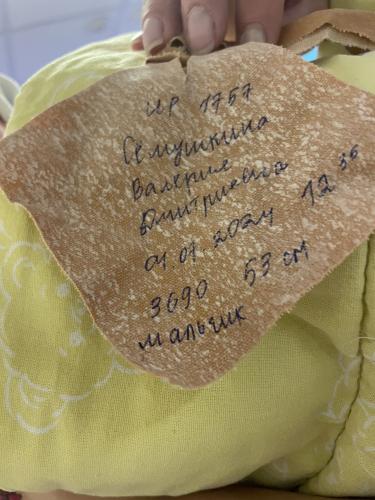 ир 1757
Семушкина
Валерия
Дмитриевна
01.07.2024 12 36
3690 53 см
мальчик